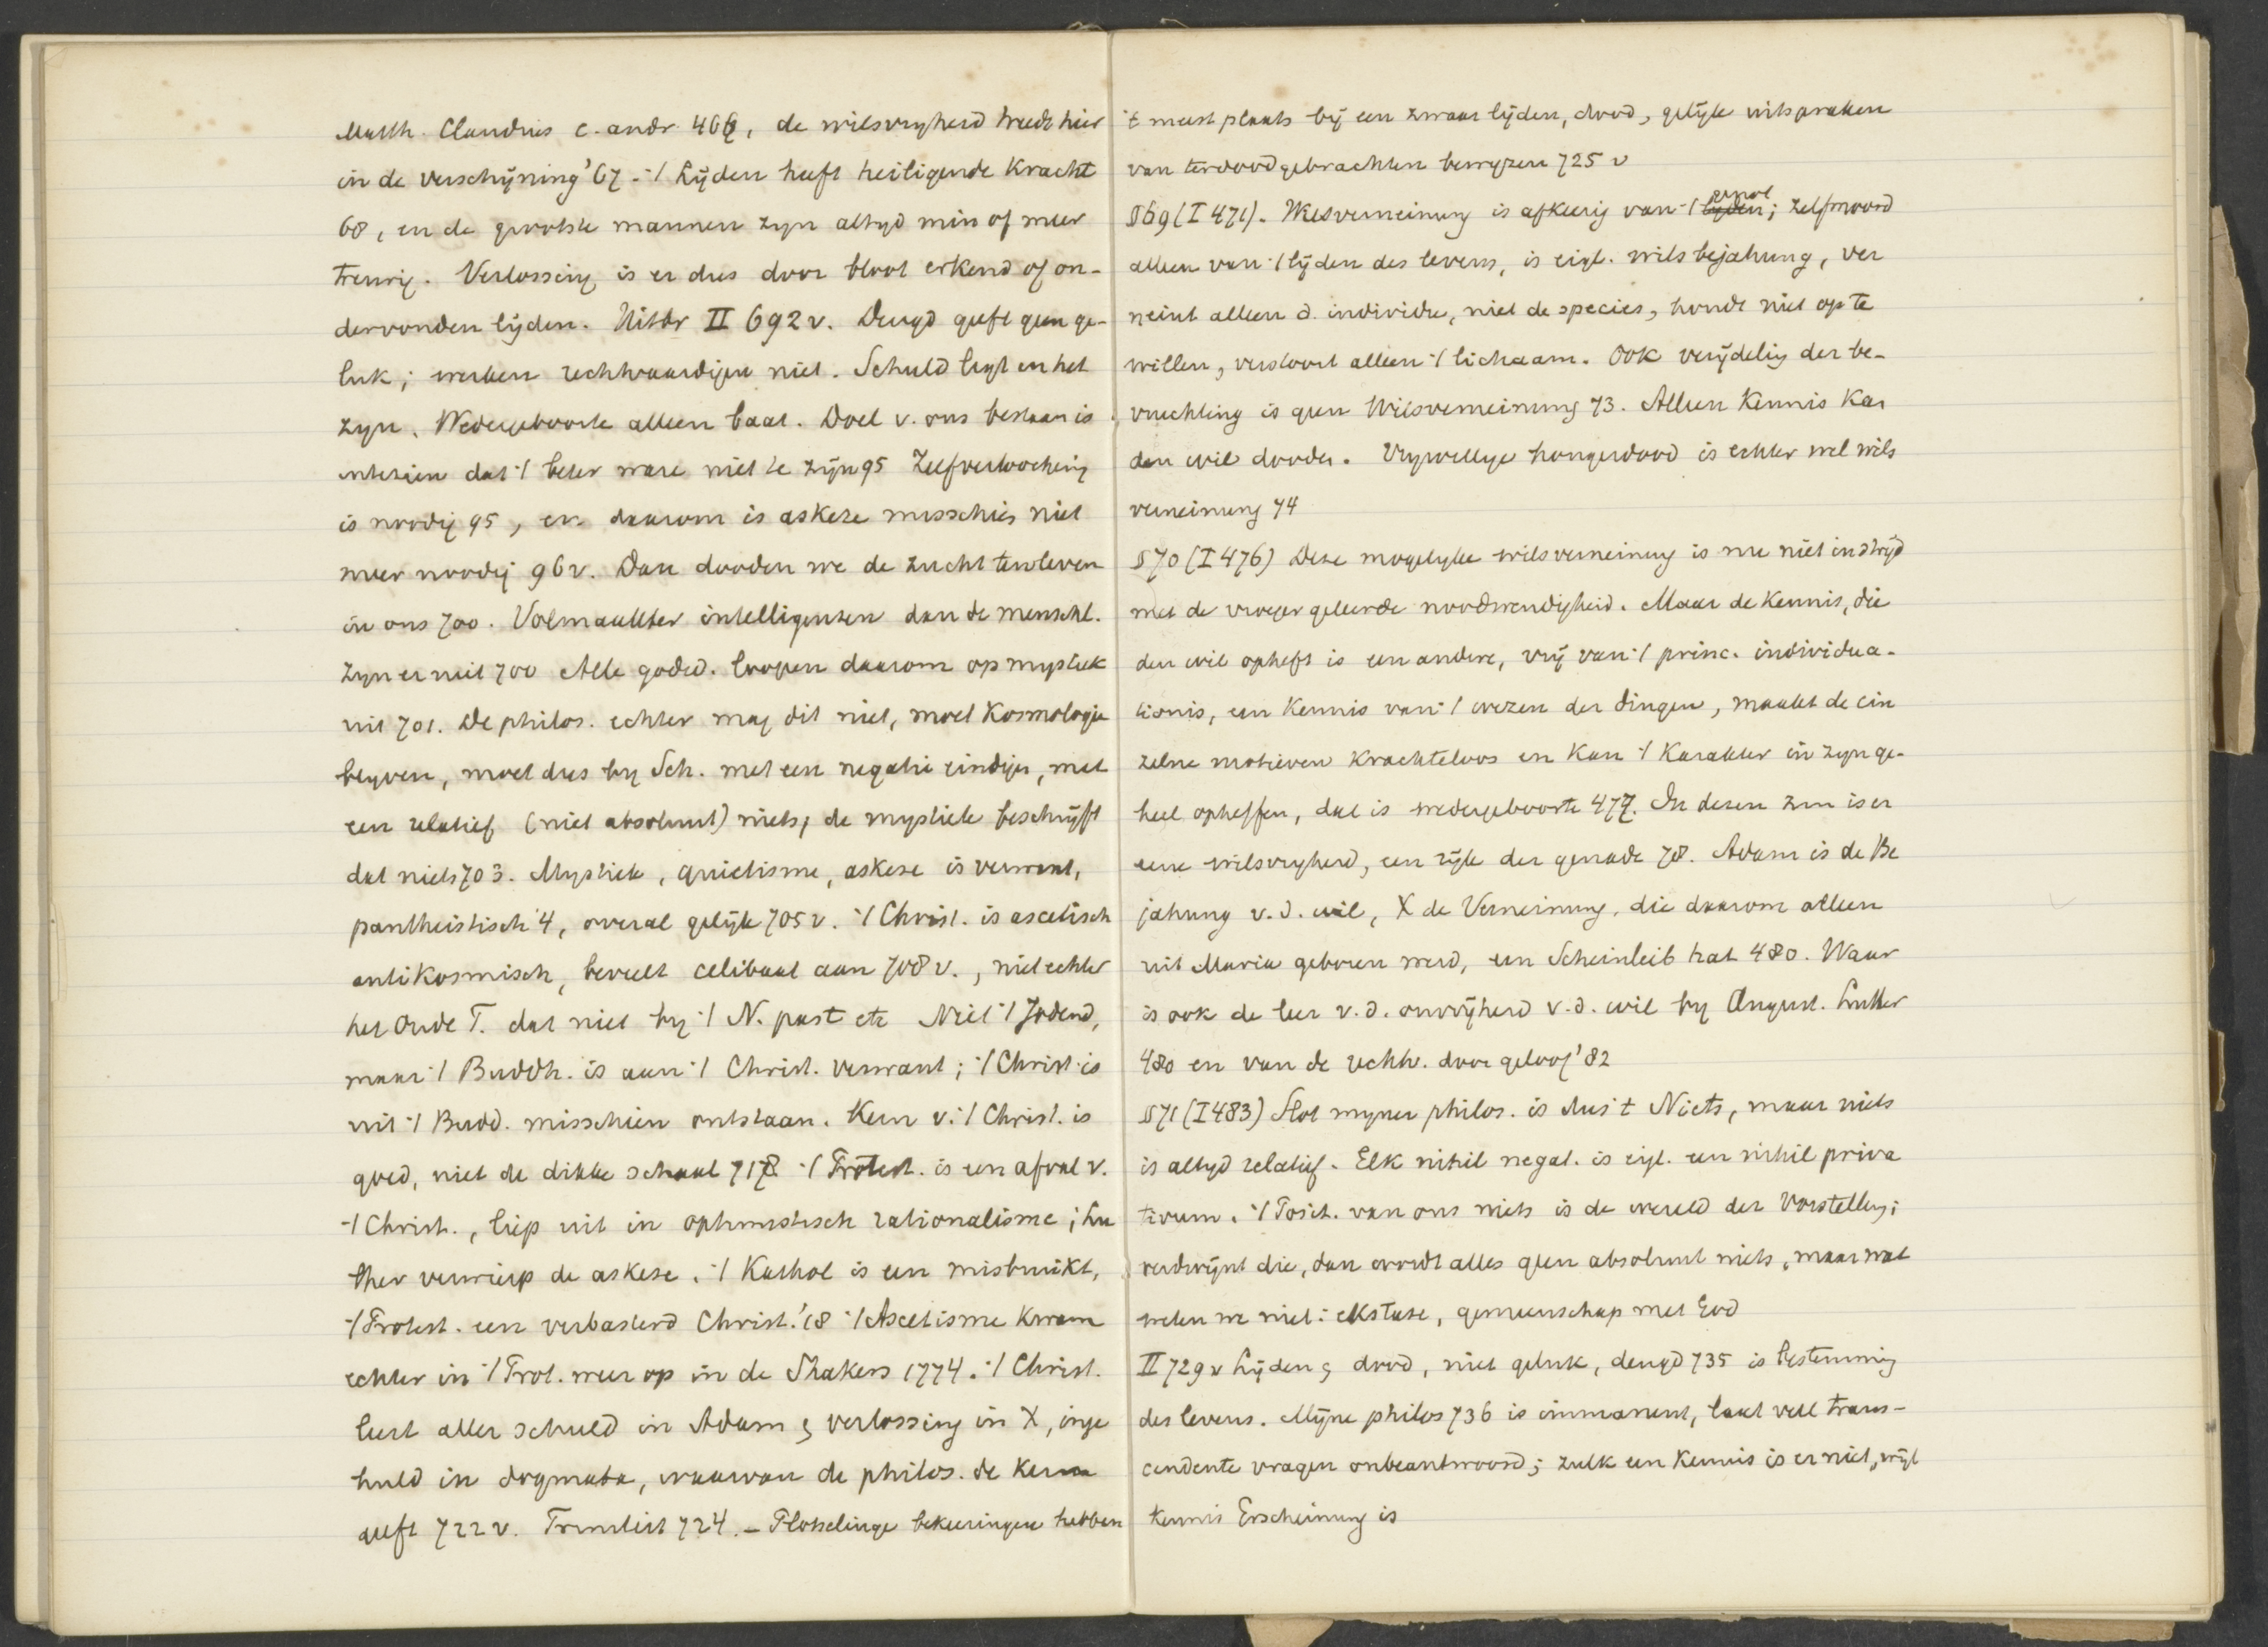 Matth. Claudius c. andr. 466, de wilsvryheid treedt hier
in de verschijning '67. 't Lijden heeft heiligende kracht
68, en de grootste mannen zyn altyd min of meer
treurig. Verlossing is er dus door bloot erkend of on-
dervonden lijden. Uitdr II 692 v. Deugd geeft geen ge-
luk; werken rechtvaardigen niet. Schuld ligt in het
zyn. Wedergeboorte alleen baat. Doel v. ons bestaan is
intezien dat 't beter ware niet te zijn 95 Zelfverloochening
is noodig 95, en daarom is askese misschien niet
meer noodig 96 v. Dan dooden we de zucht tewleven
in ons 700. Volmaakter intelligenzen dan de menschl.
zyn er niet 700 Alle godsd. loopen daarom op mystiek
uit 701. De philos. echter mag dit niet, moet kosmologie
blyven, moet dus by Sch. met een negatie eindigen, met
een relatief (niet absoluut) niets; de mystiek beschrijft
dat niets 703. Mystiek, quietisme, askese is verwant,
pantheistisch '4, overal gelijk 705 v. 't Christ. is ascetisch
antikosmisch, beveelt celibaat aan 708 v., niet echter
het Oude T. dat niet by 't N. past etc Niet 't Jodend,
maar 't Buddh. is aan 't Christ. verwant; 't Christ. is
uit 't Budd. misschien ontstaan. Kern v. 't Christ. is
goed, niet de dikke schaal 718 't Protest. is een afval v.
't Christ., liep uit in optimistisch rationalisme; Lu
ther verwierp de askese. 't Kathol is een misbruikt,
't Protest. een verbasterd Christ. '18 't Ascetisme kwam
echter in 't Prot. weer op in de Shakers 1774. 't Christ.
leert aller schuld in Adam & verlossing in X, inge
huld in dogmata, waarvan de philos. de kern
geeft 722 v. 724. – Plotselinge bekeeringen hebben
't meest plaats bij een zwaar lijden, dood, gelijk uitspraken
van terdoodgebrachten bewyzen 725 v
§ 69 (I 471). Wilsverneinung is afkeerig van 't lijden genot; zelfmoord
alleen van 't lijden des levens, is eigl. wilsbejahung, ver
neint alleen d. individu, niet de species, houdt niet op te
willen, verstoort alleen 't lichaam. Ook verijdelig der be-
vruchting is geen Wilsverneinung 73. Alleen Kennis kan
den wil dooden. Vrywillige hongerdood is echter wel wils
verneinung 74
§ 70 (I 476) Deze mogelyke wilsverneinung is nu niet in strijd
met de vroeger geleerde noodwendigheid. Maar de kennis, die
den wil opheft is een andere, vrij van 't princ. individua-
tionis, een Kennis van 't wezen der dingen, maakt de ein
zelne motieven krachteloos en kan 't karakter in zyn ge-
heel opheffen, dat is wedergeboorte 477. In dezen zin is er
eene wilsvryheid, een rijk der genade 78. Adam is de Be
jahung v. d. wil, X de Verneinung, die daarom alleen
uit Maria geboren werd, een Scheinleib hat 480. Waar
is ook de leer v. d. onvrijheid v. d. wil by August. Luther
480 en van de rechtv. door geloof '82
§ 71 (I 483) Slot myner philos. is dus 't Niets, maar niets
is altyd relatief. Elk nihil negat. is eigl. een nihil priva
tivum. 't Posit. van ons niets is de wereld der Vorstellung;
verdwijnt die, dan wordt alles geen absoluut niets, maar wat
weten we niet: ekstase, gemeenschap met God
II 729 v Lijden & dood, niet geluk, deugd 735 is bestemming
des levens. Mijne philos 736 is immanent, laat veel trans-
cendente vragen onbeantwoord; zulk een kennis is er niet, wijl
kennis Erscheinung is